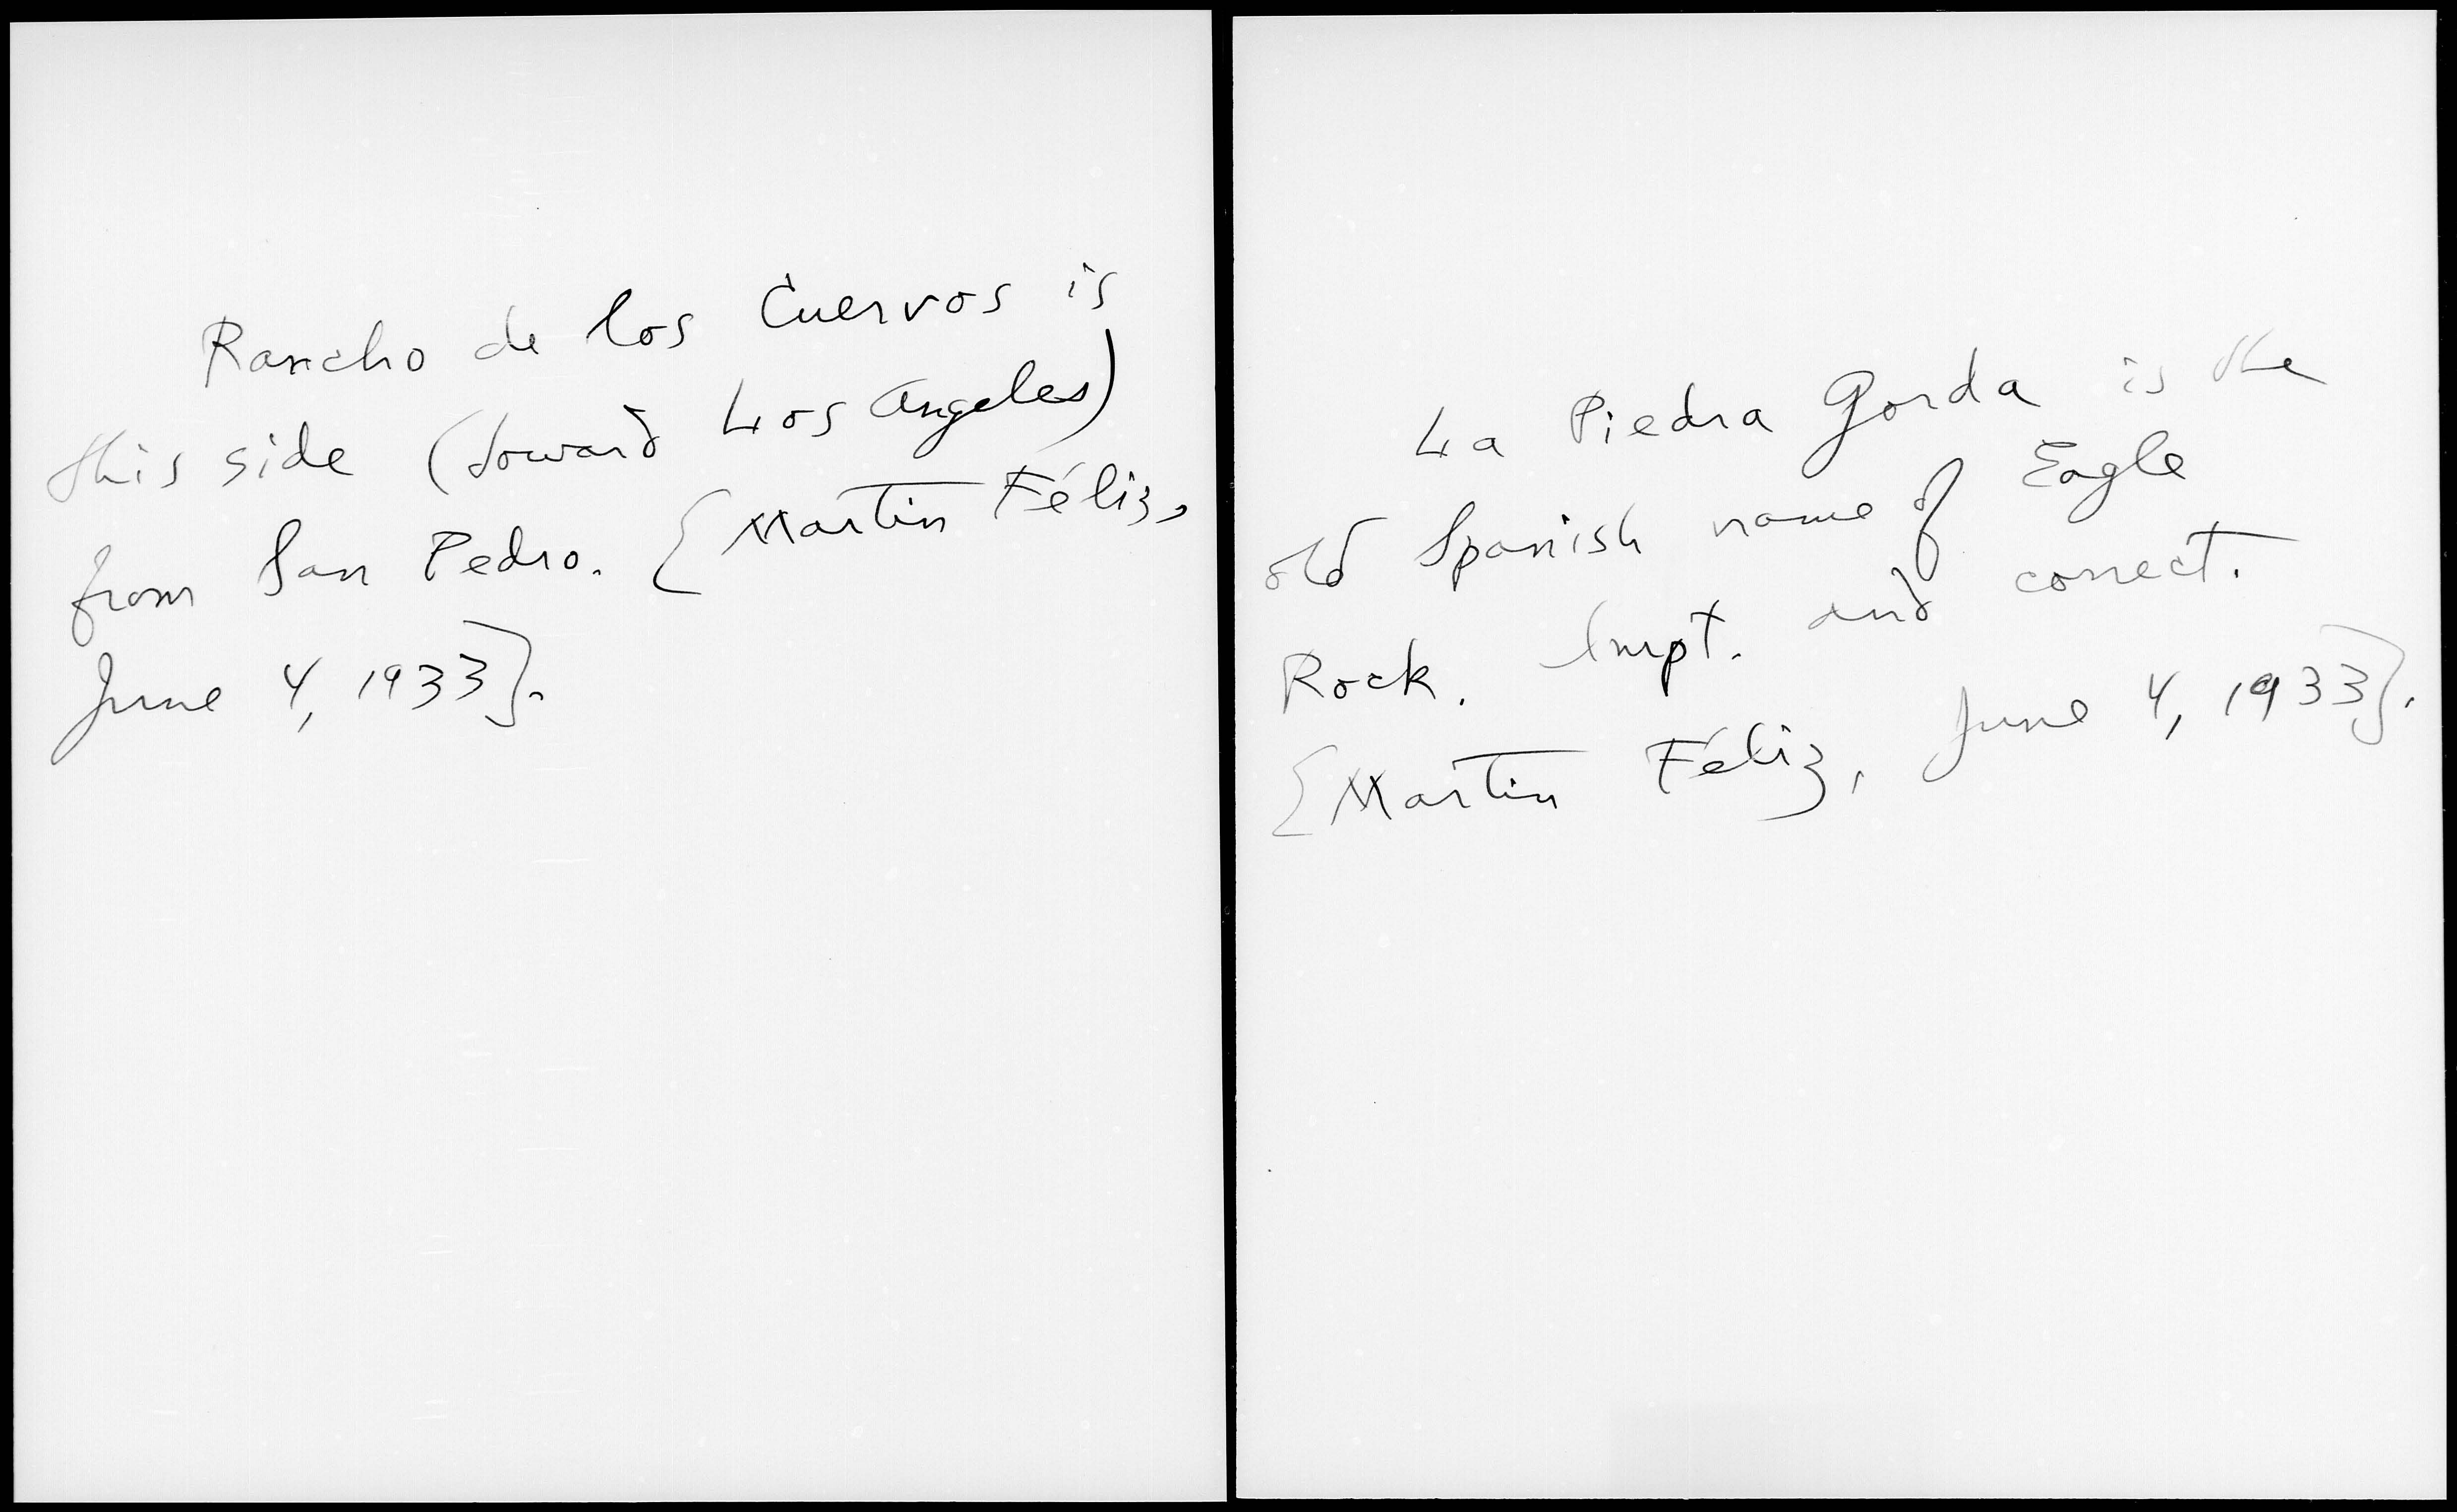 Rancho de los Cuervos is
this side (toward Los Angeles)
from San Pedro. [Martin Féliz,
June 4, 1933].
La Piedra Gorda is the
old Spanish name of Eagle
Rock. Impt. and correct.
[Martin Féliz, June 4, 1933].